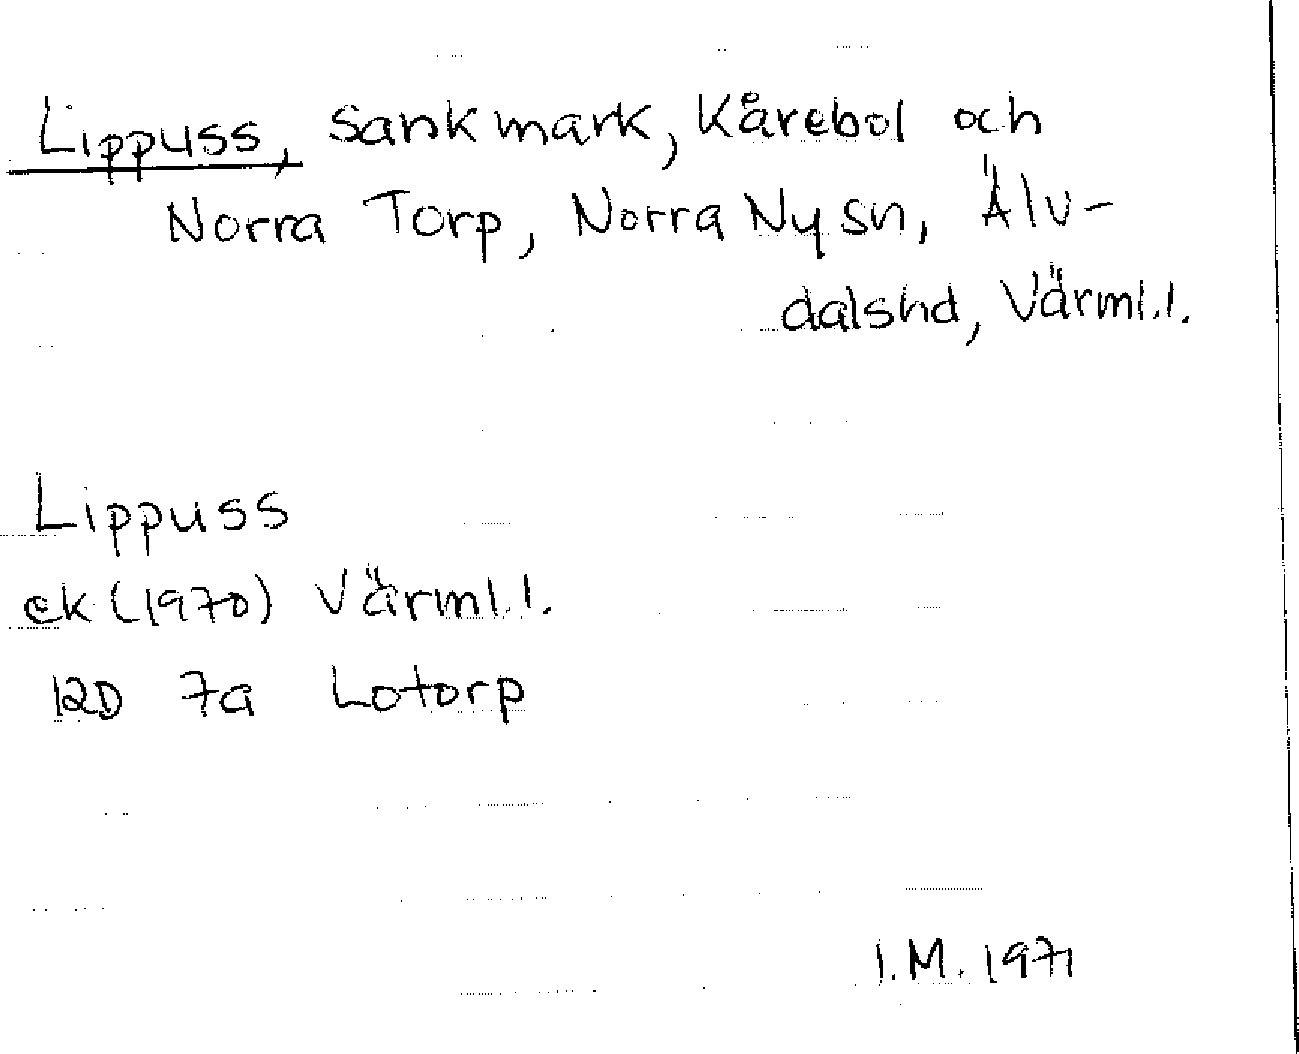 Lippuss, sankmark, Kårebol och
Norra Torp, Norra Ny sn, Älv-
dalshd, Värml.l.
Lippuss
ek (1970) Värml.l.
12D 7a Lotorp
I.M. 1971